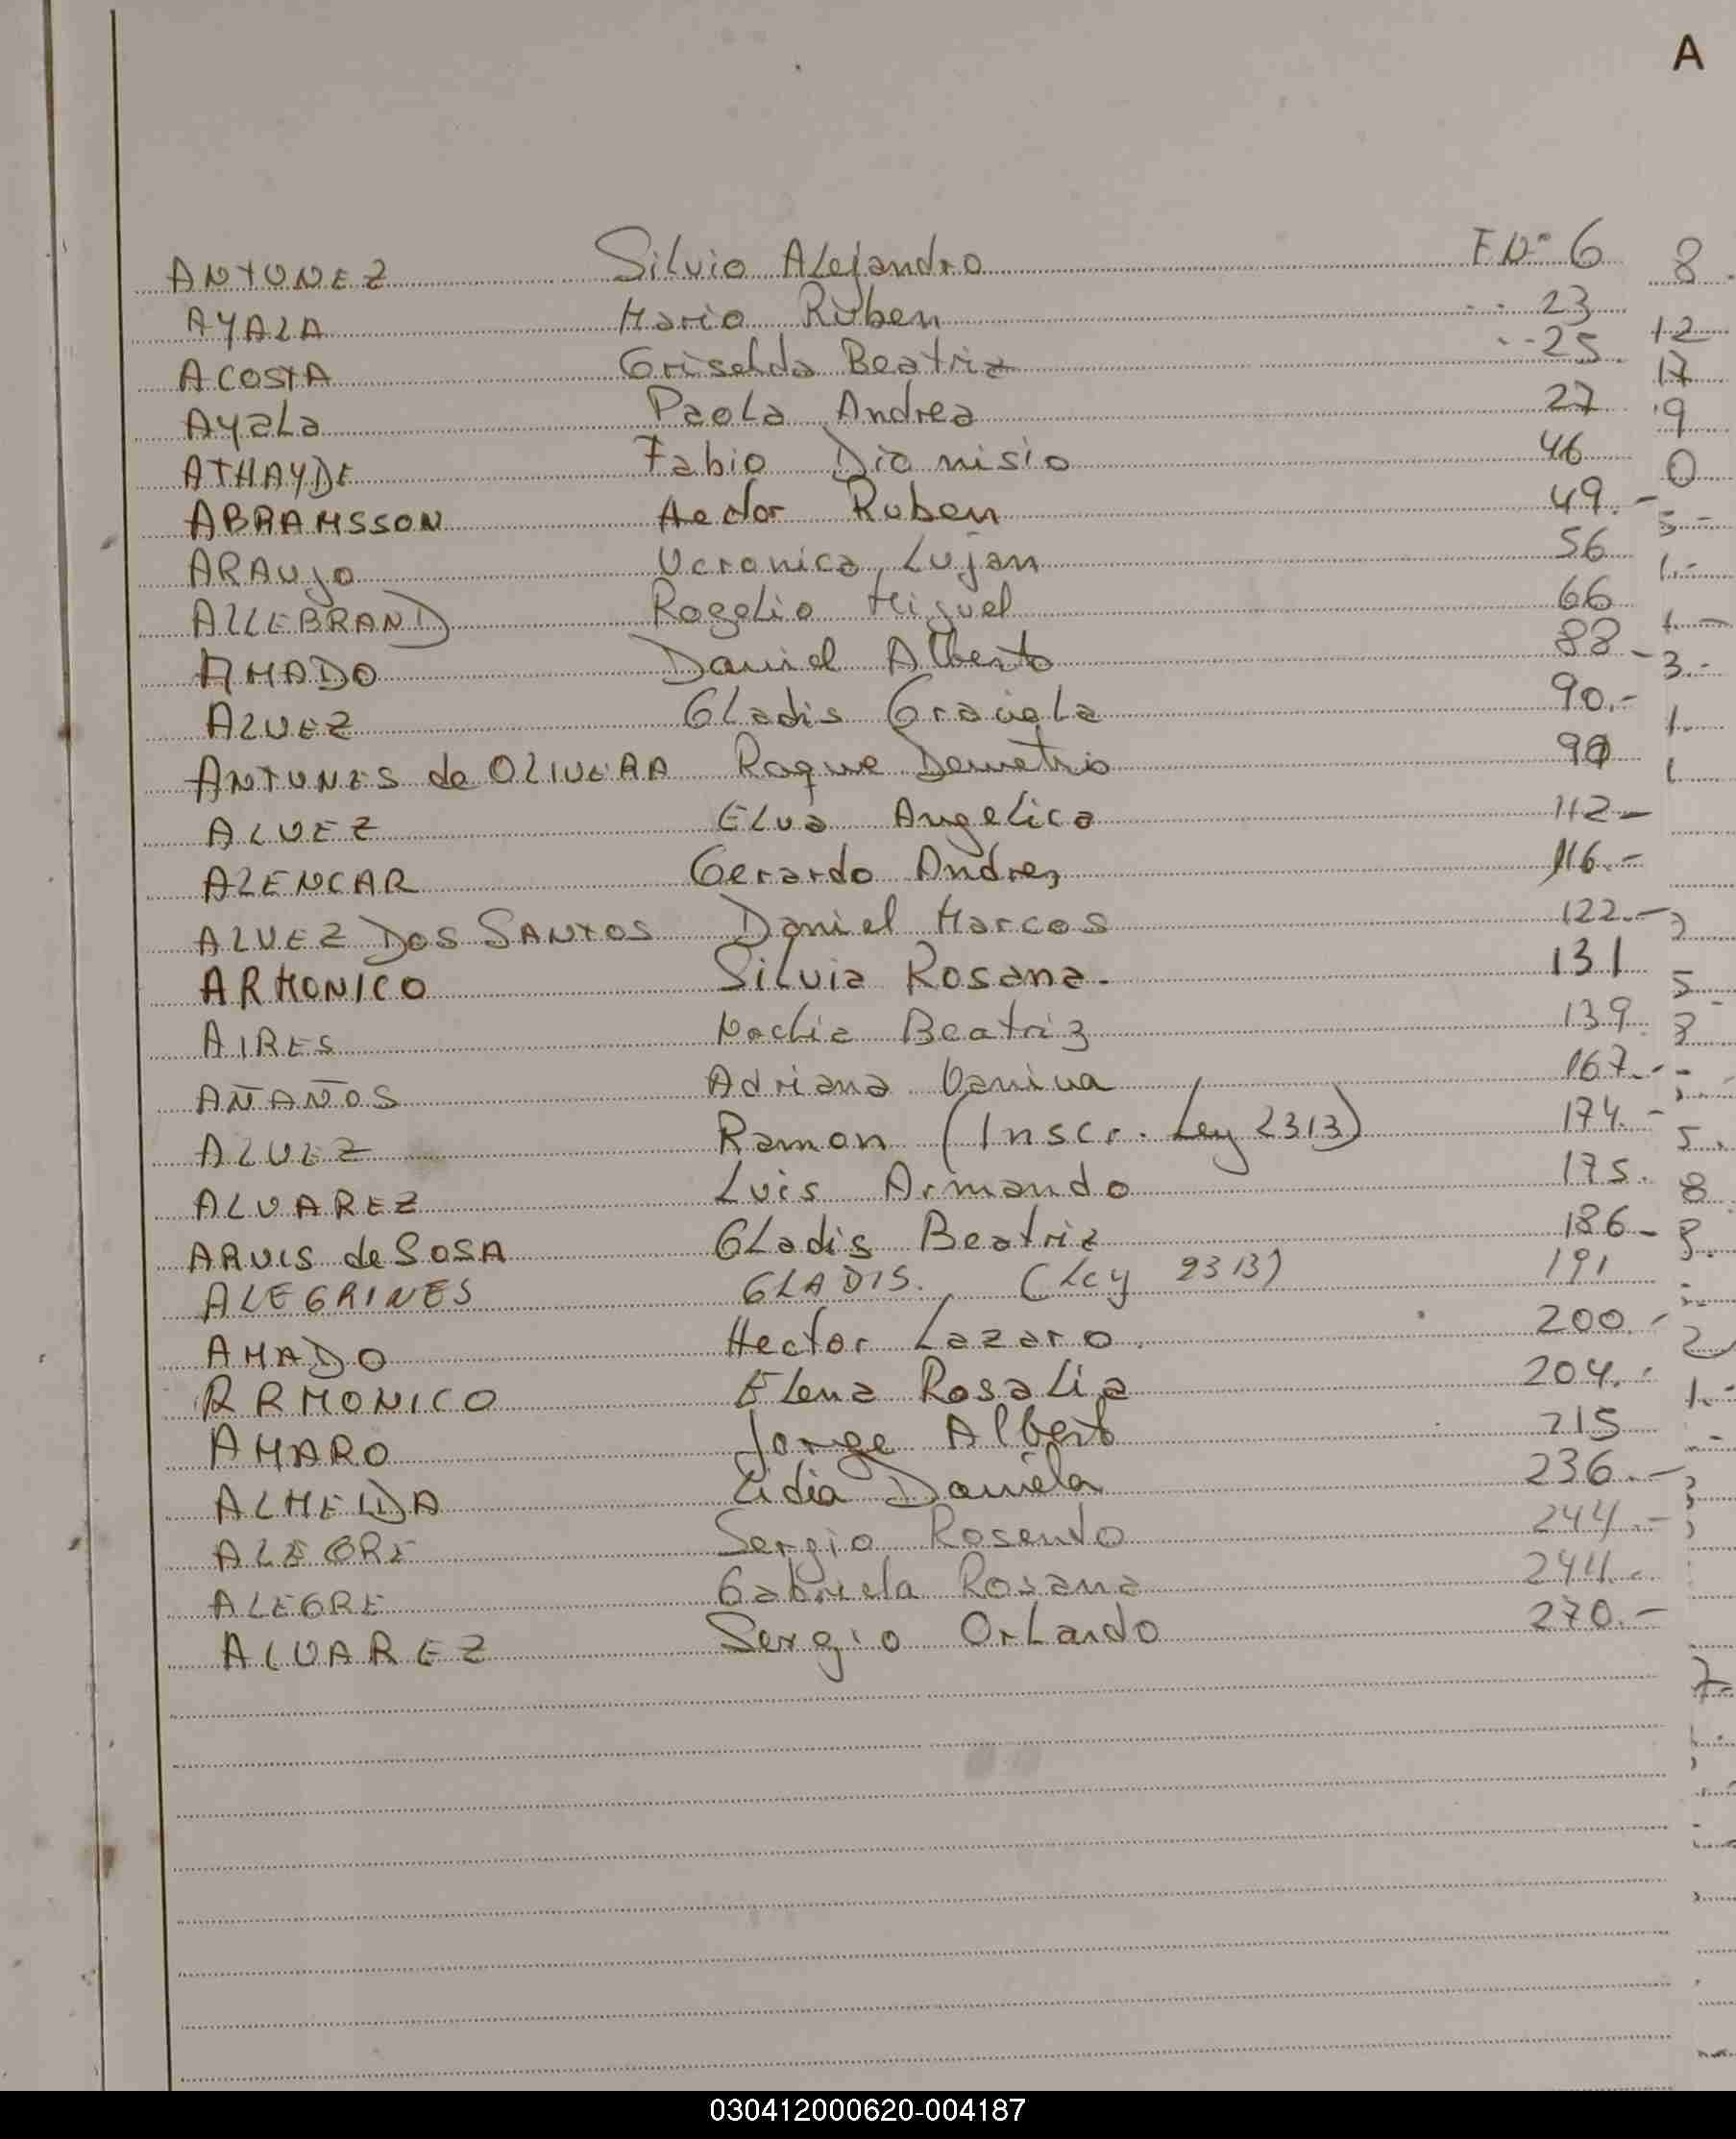 A
ANTUNEZ Silvio Alejandro Fº Nº 6
AYALA Mario Ruben 23
ACOSTA Griselda Beatriz 25
Ayala Paola Andrea 27
ATHAYDE Fabio Dionisio 46
ABRAMSSON Hector Ruben 49.-
ARAUJO Veronica Lujan 56
ALLEBRAND Rogelio Miguel 66
AMADO Daniel Alberto 88
ALVEZ Gladis Graciela 90.-
ANTUNES de OLIVERA Roque Demetrio
ALVEZ Elva Angelica 112-
ALENCAR Gerardo Andres 116.-
ALVEZ DOS SANTOS Daniel Marcos 122.-
ARMONICO Silvia Rosana. 131
AIRES Noelia Beatriz 139
AÑAÑOS Adriana Vanina 167.-
ALVEZ Ramon (Inscr. Ley 2313) 174.-
ALVAREZ Luis Armando 175.
ARVIS de SOSA Gladis Beatriz 186-
ALEGRINES GLADIS. (Ley 2313) 191
AMADO Hector Lazaro. 200.-
ARMONICO Elena Rosalia 204.-
AMARO Jorge Alberto 215
ALMEIDA Lidia Daniela 236.-
ALEGRE Sergio Rosendo 244.-
ALEGRE Gabriela Rosana 244.-
ALVAREZ Sergio Orlando 270.-
030412000620-004187